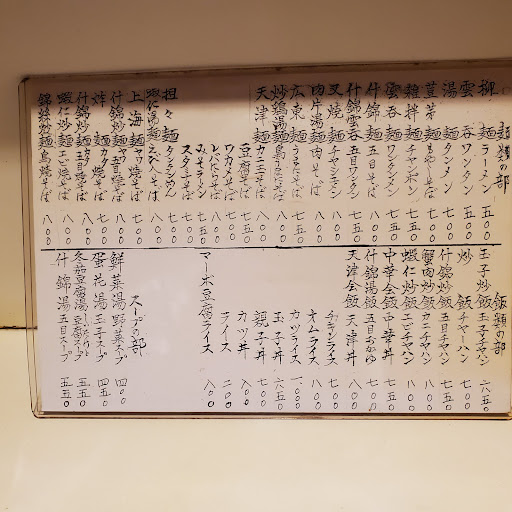 麺類の部
柳麺 ラーメン 五〇〇
雲呑 ワンタン 五〇〇
湯麺 タンメン 七〇〇
豆芽麺 もやしそば 七〇〇
雑拌麺 チャンポン 七五〇
雲呑麺 ワンタンメン 七五〇
什錦麺 五目そば
什錦雲呑 五目ワンタン
叉焼麺 チャシューメン
肉片湯麺 肉そば
広東麺 うまにそば
炒鶏湯麺 鳥うまにそば
天津麺 カニ玉そば 八〇〇
豆腐そば
ワカメそば 七〇〇
レバにらそば
みそラーメン 七五〇
スタミナそば
担々麺 タンタンめん
蝦仁湯麺 えび入そば 八〇〇
上海麺 ヤキそば 七〇〇
什錦炒麺 五目ヤキそば 八〇〇
炸麺 カタヤキそば
什錦炸麺 五目カタヤキそば
蝦仁炒麺 エビ焼そば 八〇〇
錦絲炒麺 鳥焼そば 八〇〇
飯類の部
玉子炒飯 玉子チャハン 六五〇
炒飯 チャーハン 七〇〇
什錦炒飯 五目チャハン 七五〇
蟹肉炒飯 カニチャハン 八〇〇
蝦仁炒飯 エビチャハン 八〇〇
中華会飯 中華丼 七五〇
什錦湯飯 五目おかゆ 八〇〇
天津会飯 天津丼 八〇〇
チキンライス 七〇〇
オムライス 八〇〇
カツライス 一、〇〇〇
玉子丼 六五〇
親子丼 七〇〇
カツ丼 八〇〇
ライス 二〇〇
マーボ豆腐ライス 八〇〇
スープの部
鮮菜湯 野菜スープ 四〇〇
蛋花湯 玉子スープ 四五〇
冬菇豆腐湯 豆腐スープ 五五〇
什錦湯 五目スープ 五五〇